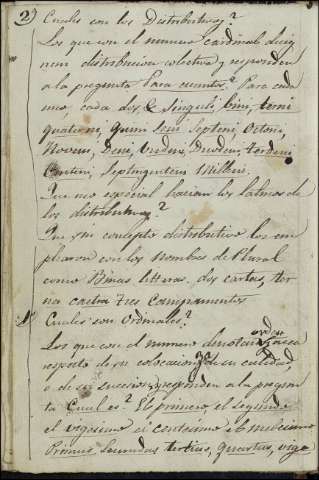 2) Cuales son los Distributivos?
Los que con el numero cardinal desig
nan distribucion colectiva y responden
a la pregunta Para cuantos? Para cada
uno, cada dos, & Singuli, bini, terni
quaterni, Quini Seni Septeni, Octoni,
Noveni, Deni, Undeni, Duodeni, terdeni
Centeni, Septingenteni Milleni.
Que uso especial hacian los latinos de
los distributivos?
Que sin concepto distributivo los em
plearon con los nombres de Plural
como Binas litteras dos cartas, ter
na castra Tres Campamentos
Cuales son Ordinales?
Los que con el numero denotan orden
respecto de su colocacion, de su calidad,
o de su sucesion, y responden a la pregun
ta Cual es? El primero, el segundo
el vigesimo el centesimo el
Primus, Secundus tertius, quartus, vige